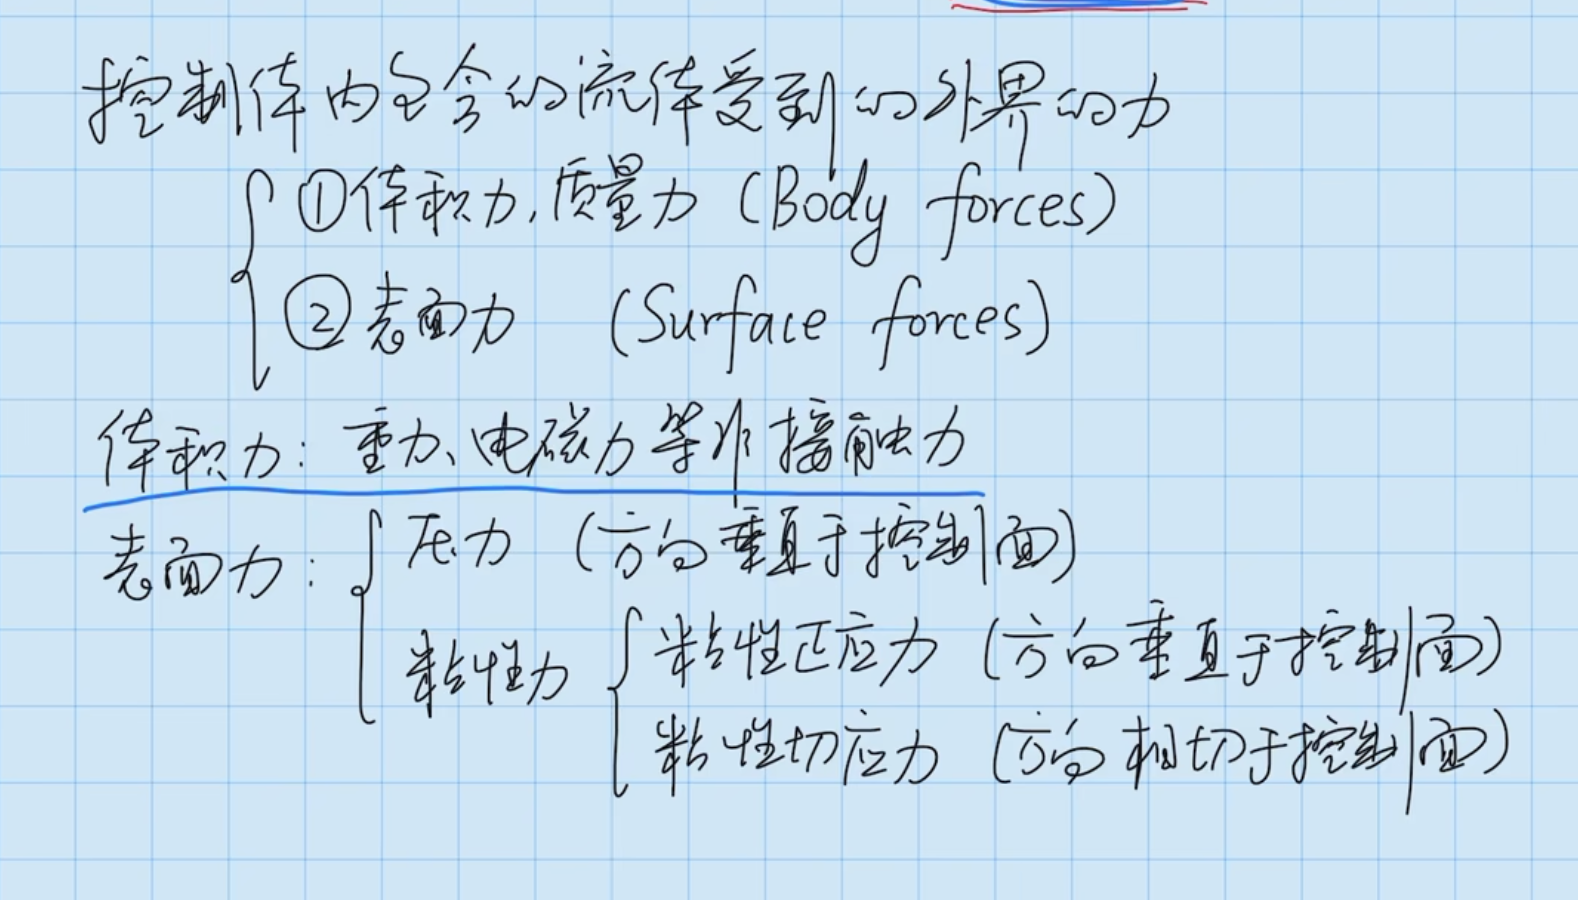 控制体内包含的流体受到的外界的力
①体积力,质量力 (Body forces)
②表面力 (Surface forces)
体积力: 重力、电磁力等非接触力
表面力: 压力 (方向垂直于控制面)
粘性力 粘性正应力 (方向垂直于控制面)
粘性切应力 (方向相切于控制面)